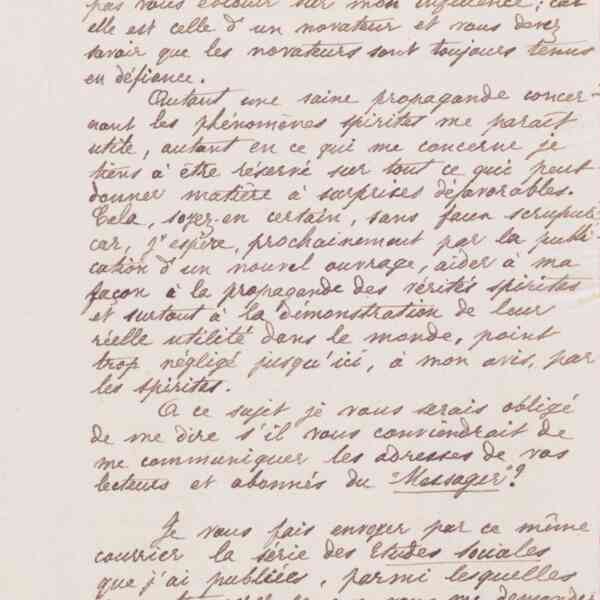 pas vous éblouir sur mon influence ; car
elle est celle d'un novateur et vous devez
savoir que les novateurs sont toujours tenus
en défiance.
Autant une saine propagande concer-
nant les phénomènes spirites me parait
utile, autant en ce qui me concerne je
tiens à être réservé sur tout ce qui peut
donner matière à surprises défavorables.
Cela, soyez-en certain, sans faux scrupule
car, j'espère, prochainement par la publi-
cation d'un nouvel ouvrage, aider à ma
façon à la propagande des vérités spirites
et surtout à la démonstration de leur
réelle utilité dans le monde, point
trop négligé jusqu'ici, à mon avis, par
les spirites.
A ce sujet je vous serais obligé
de me dire s'il vous conviendrait de
me communiquer les adresses de vos
lecteurs et abonnés du "Messager"?
Je vous fais envoyer par ce même
courrier la série des Etudes sociales
que j'ai publiées, parmi lesquelles
vous me demander